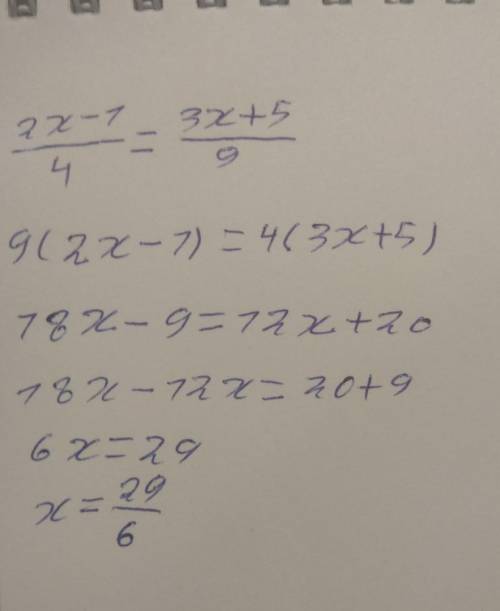 (2x-1)/4 = (3x+5)/9
9(2x-1)=4(3x+5)
18x-9=12x+20
18x-12x=20+9
6x=29
x=29/6